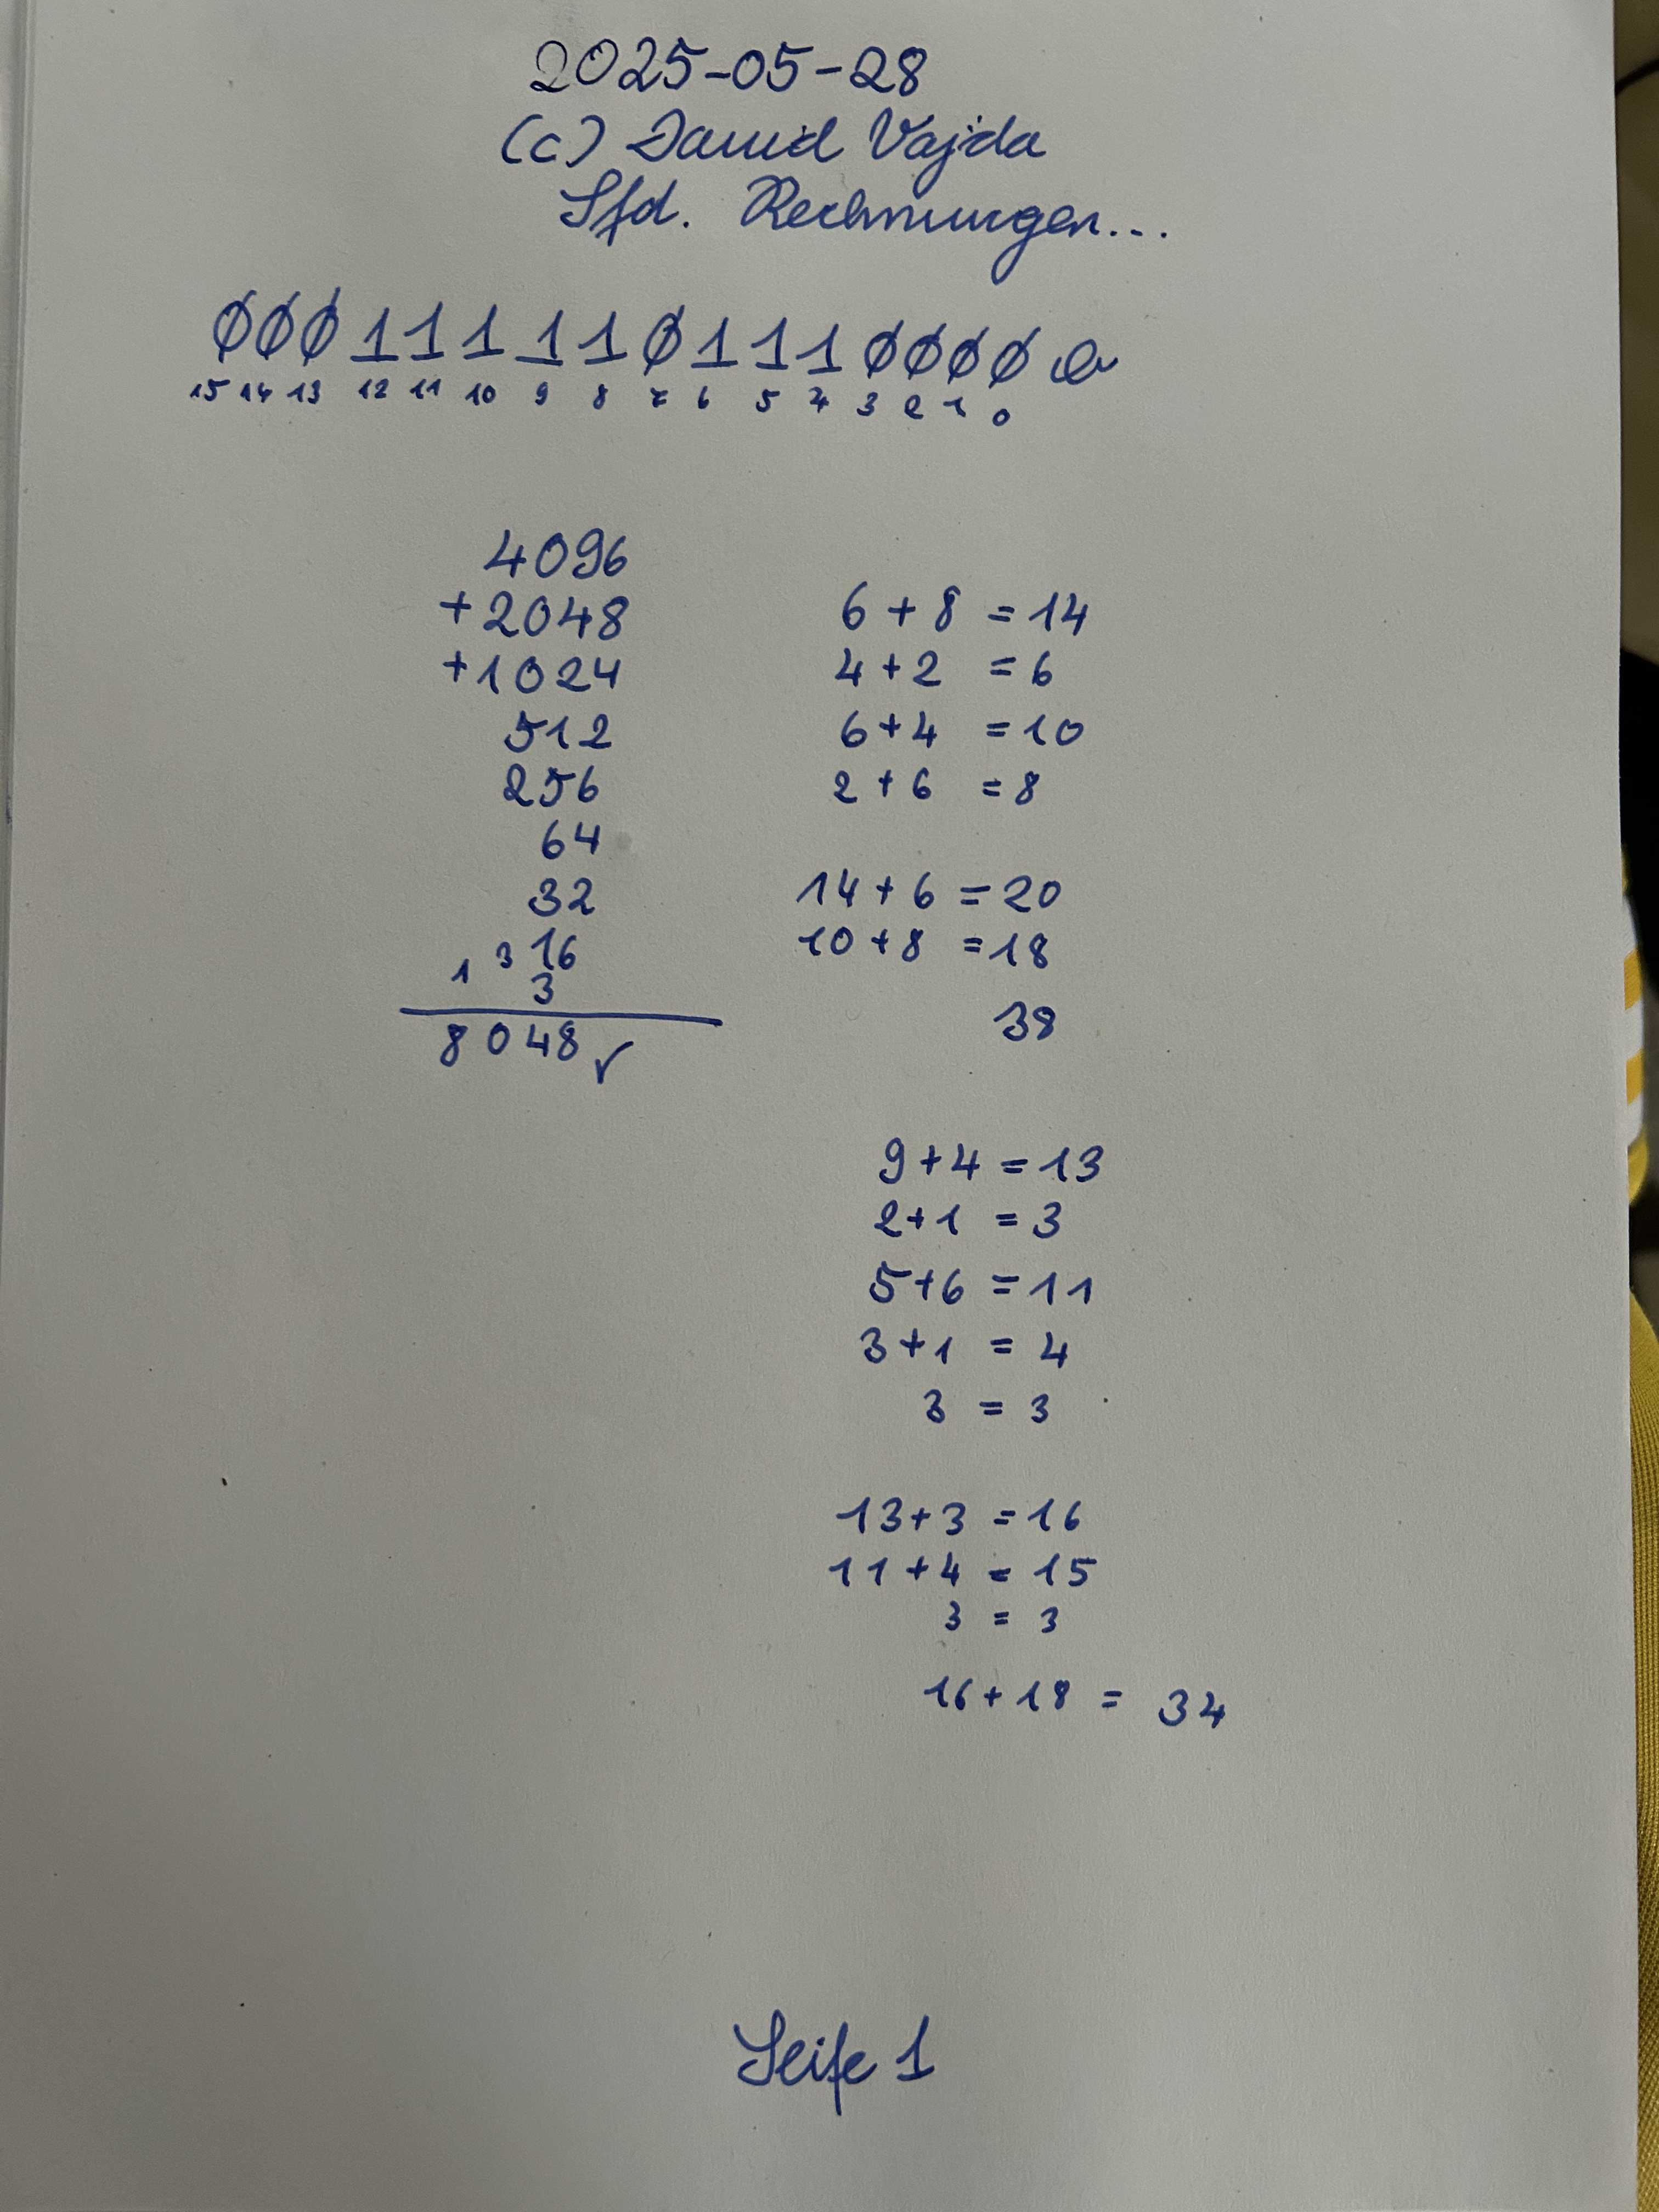 2025-05-28
(c) David Vajda
Sfd. Rechnungen...
0001111101110000
15 14 13 12 11 10 9 8 7 6 5 4 3 2 1 0
4096
+2048
+1024
512
256
64
32
1 3 16
3
8048 ✓
6 + 8 = 14
4 + 2 = 6
6 + 4 = 10
2 + 6 = 8
14 + 6 = 20
10 + 8 = 18
38
9 + 4 = 13
2 + 1 = 3
5 + 6 = 11
3 + 1 = 4
3 = 3
13 + 3 = 16
11 + 4 = 15
3 = 3
16 + 18 = 34
Seite 1